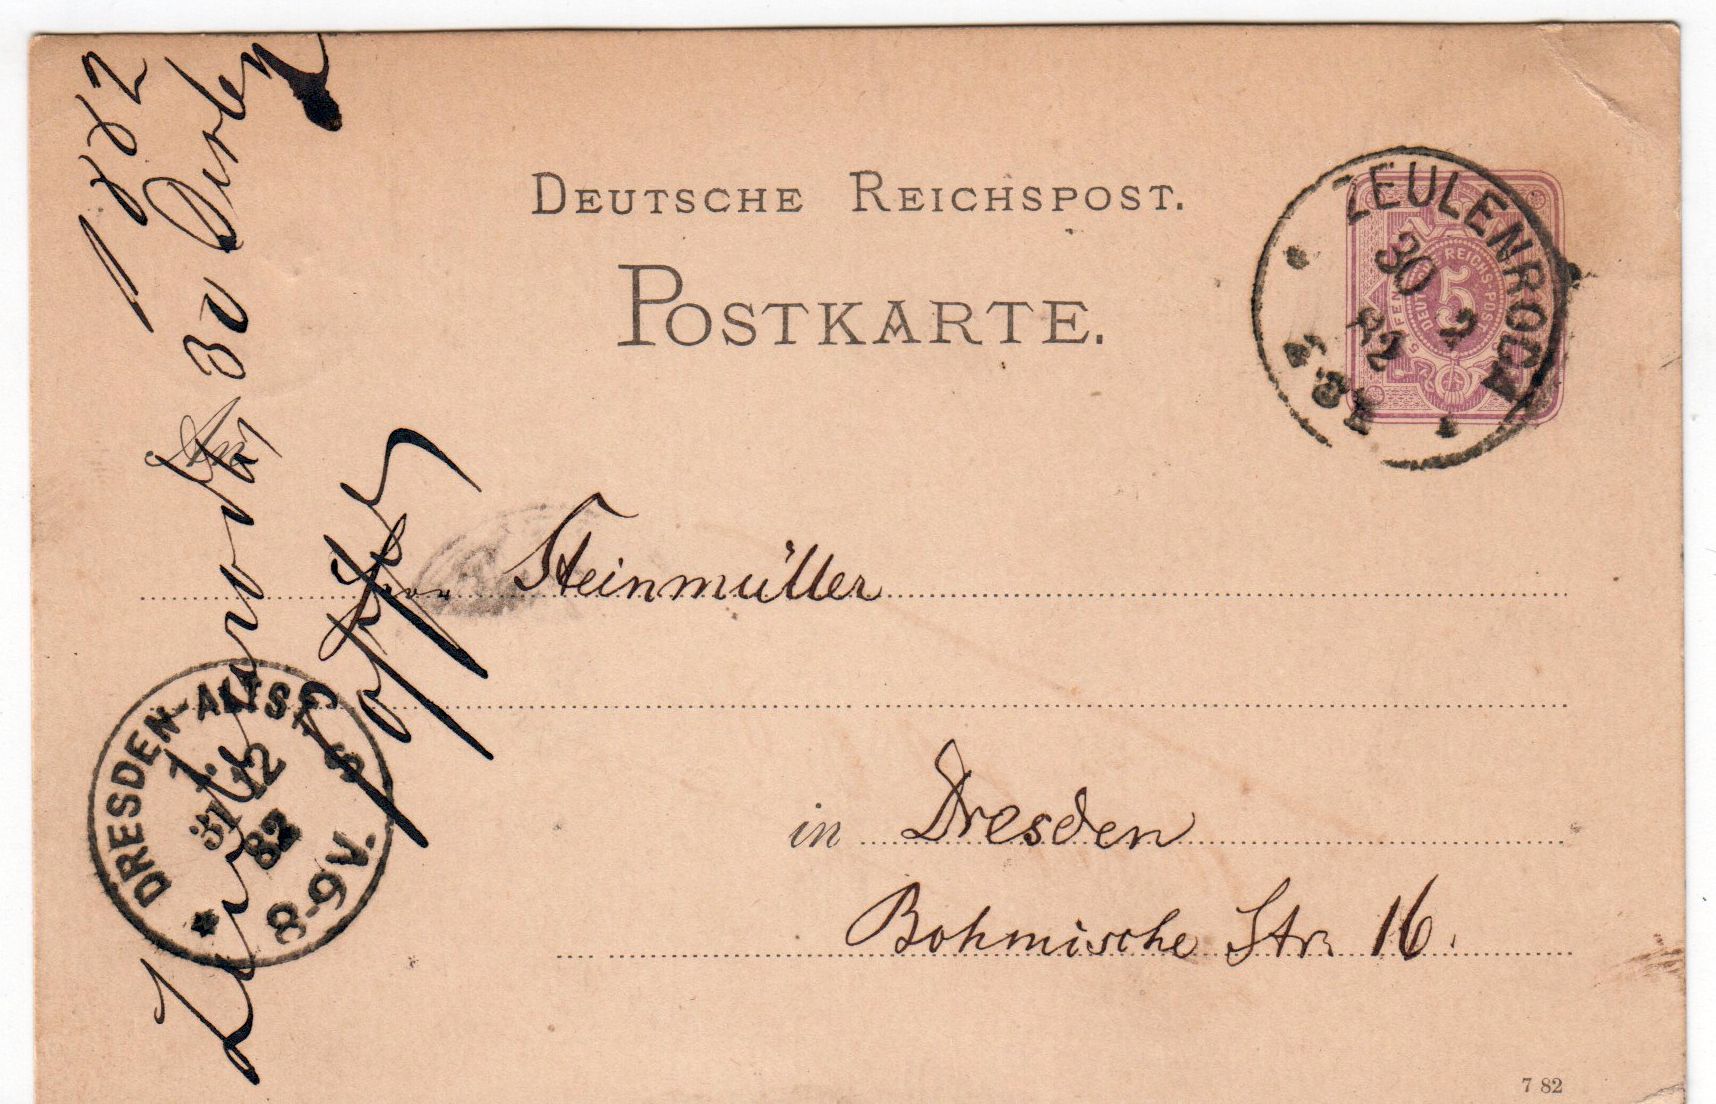 DEUTSCHE REICHSPOST.
POSTKARTE.
ZEULENRODA
30
82
5
DEUTSCHE REICHS-POST
1882
An
Steinmüller
in Dresden
Bohmische Str. 16.
DRESDEN-ALTST.
31 12
82
8-9 V.
7 82